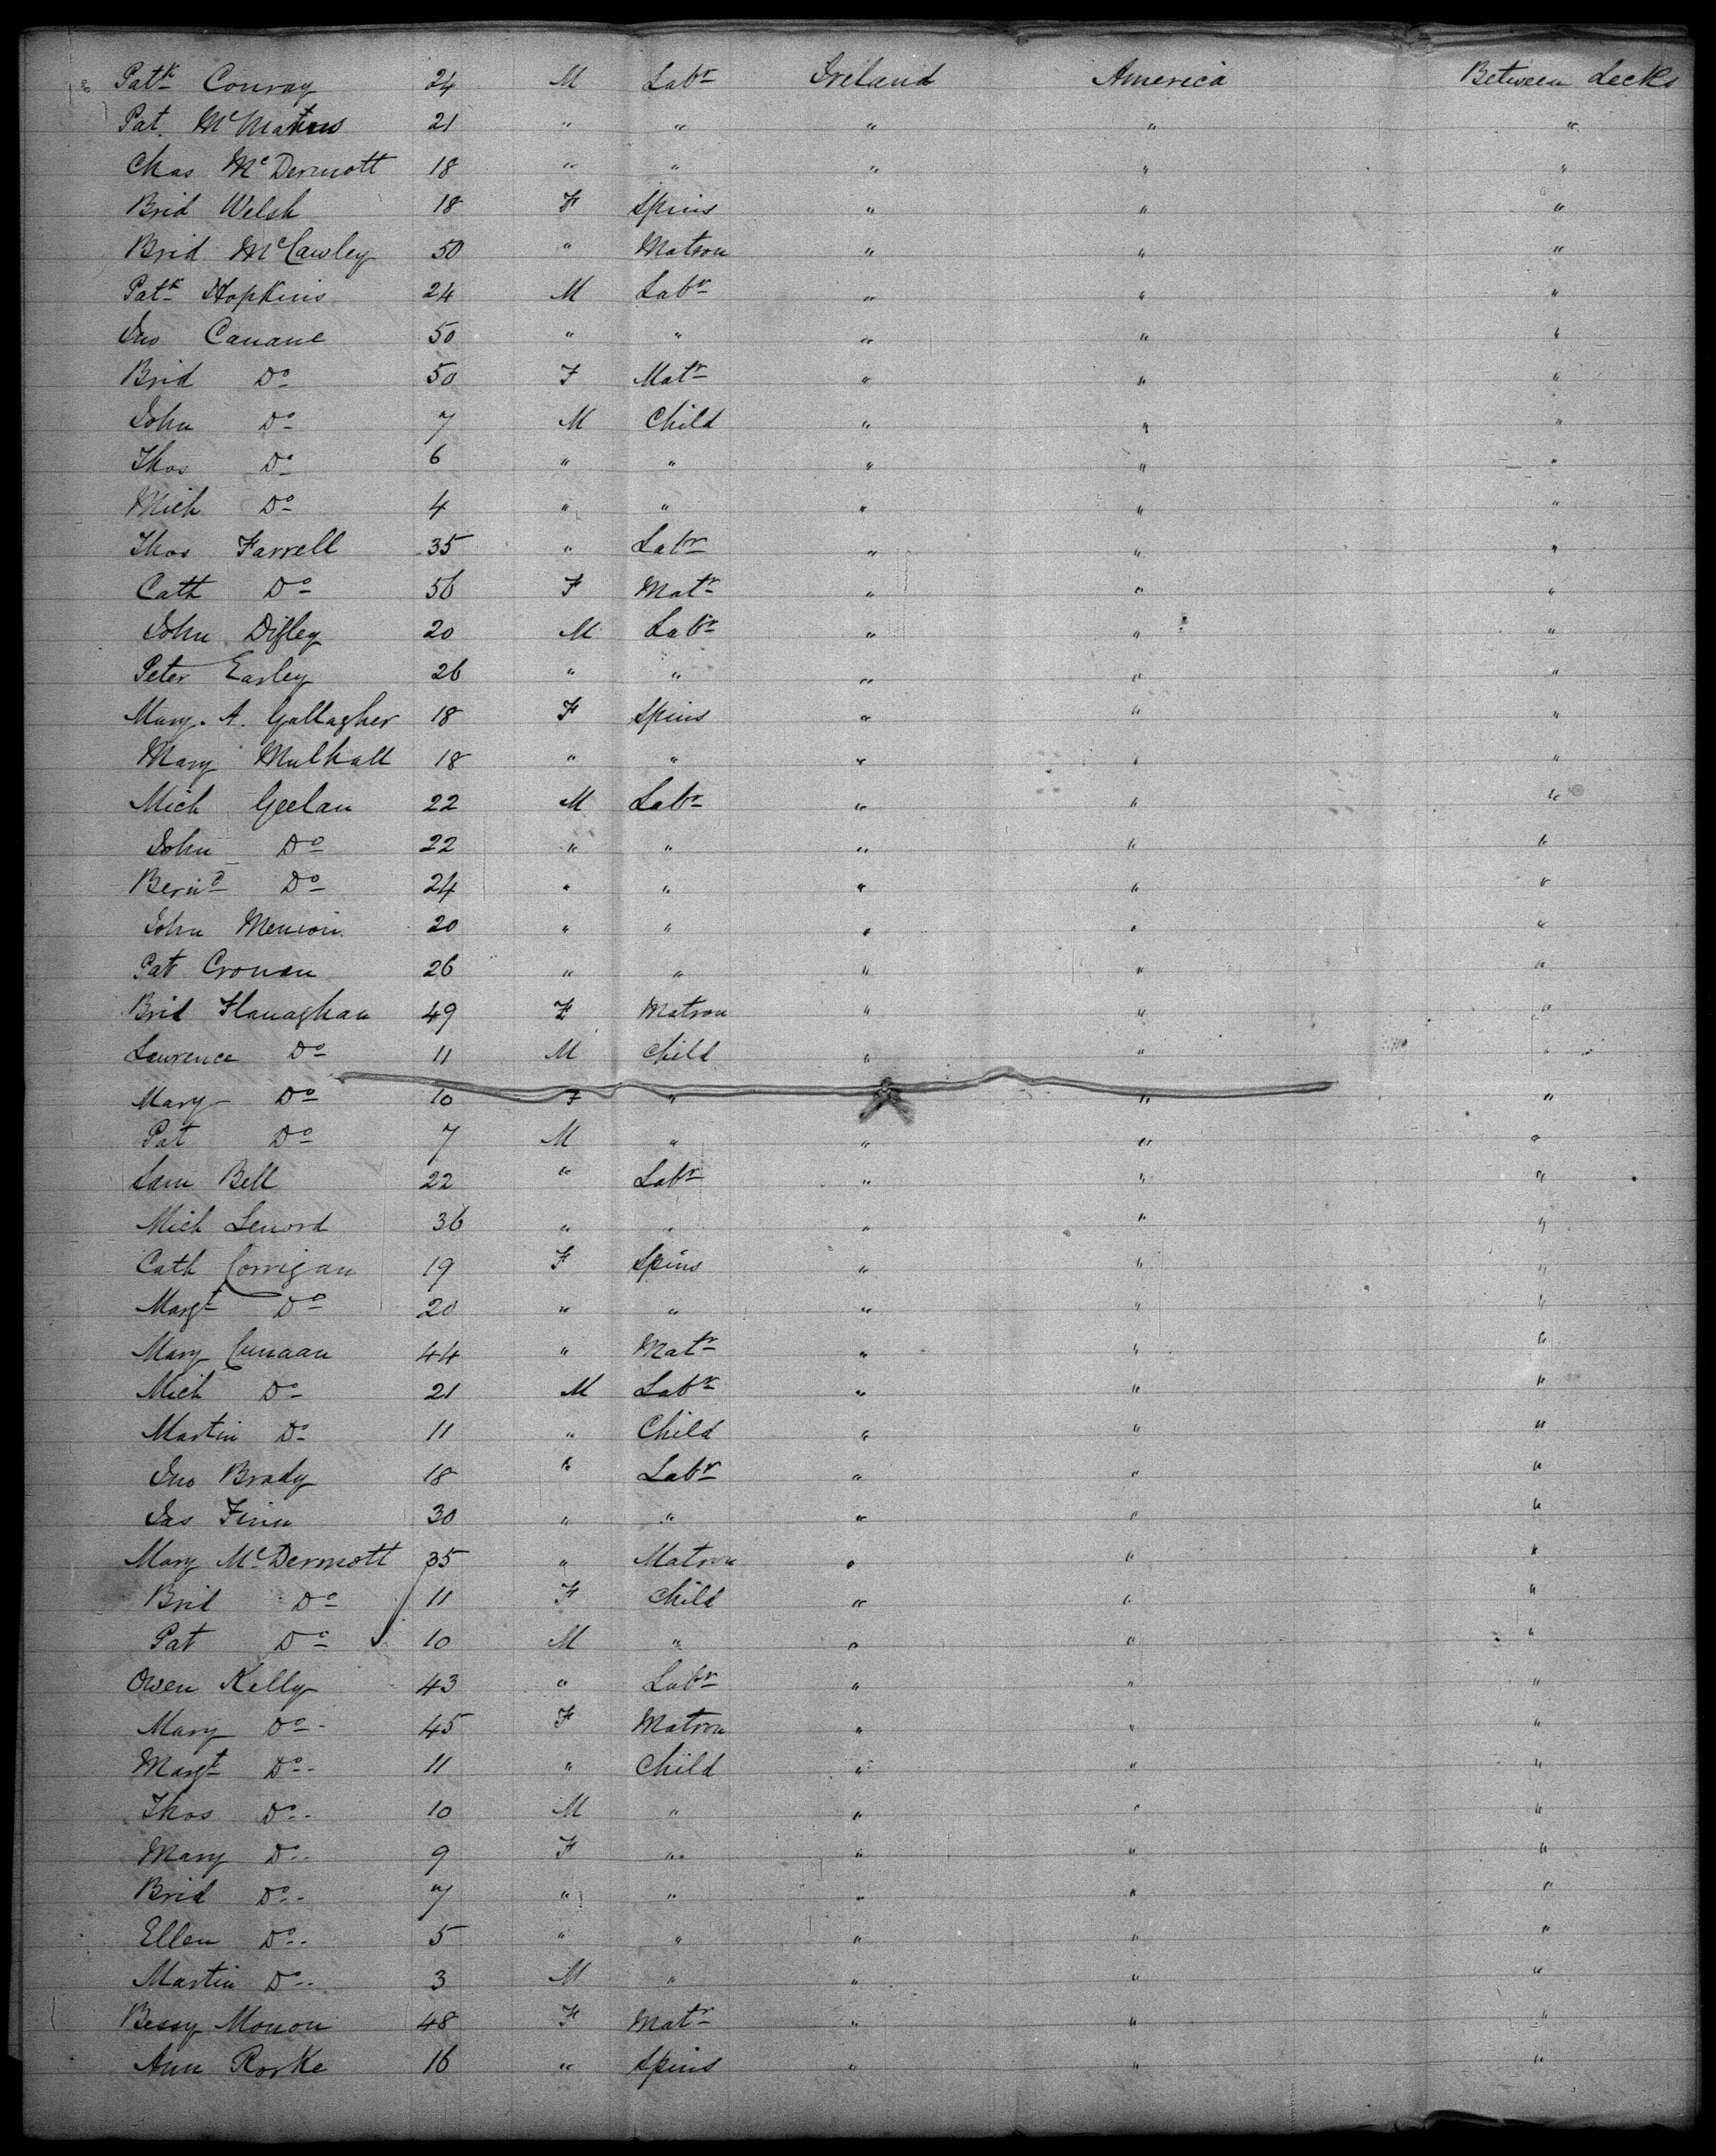 Patk Conray 24 M Labr Ireland America Between decks
Pat. McManus 21 " " " " "
Chas McDermott 18 " " " " "
Brid Welsh 18 F Spins " " "
Brid McCawley 50 " Matron " " "
Patk Hopkins 24 M Labr " " "
Jno Canane 50 " " " " "
Brid Do 50 F Matr " " "
John Do 7 M Child " " "
Thos Do 6 " " " " "
Mich Do 4 " " " " "
Thos Farrell 35 " Labr " " "
Cath Do 56 F Matr " " "
John Difley 20 M Labr " " "
Peter Earley 26 " " " " "
Mary. A. Gallagher 18 F Spins " " "
Mary Mulhall 18 " " " " "
Mich Geelan 22 M Labr " " "
John Do 22 " " " " "
Bernd Do 24 " " " " "
John 20 " " " " "
Pat Cronan 26 " " " " "
Brid Flanaghan 49 F Matron " " "
Lawrence Do 11 M Child " " "
Mary Do 10 F " " " "
Pat Do 7 M " " " "
Sam Bell 22 " Labr " " "
Mich Lenord 36 " " " " "
Cath Corrigan 19 F Spins " " "
Margt Do 20 " " " " "
Mary Cunaan 44 " Matr " " "
Mich Do 21 M Labr " " "
Martin Do 11 " Child " " "
Jno Brady 18 " Labr " " "
Jas Finn 30 " " " " "
Mary McDermott 35 " Matron " " "
Brid Do 11 F Child " " "
Pat Do 10 M " " " "
Owen Kelly 43 " Labr " " "
Mary Do 45 F Matron " " "
Margt Do 11 " Child " " "
Thos Do 10 M " " " "
Mary Do 9 F " " " "
Brid Do 7 " " " " "
Ellen Do 5 " " " " "
Martin Do 3 M " " " "
Bessy Monon 48 F Matr " " "
Ann Rorke 16 " Spins " " "